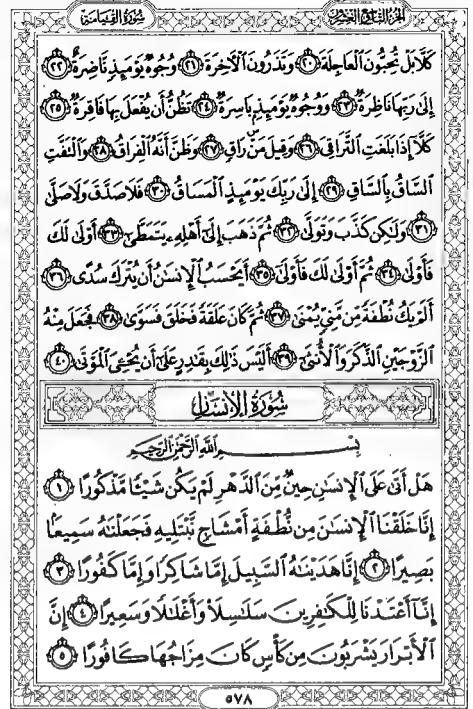 الجزء التاسع والعشرون
سورة القيامة
كَلَّا بَلْ تُحِبُّونَ ٱلْعَاجِلَةَ ﴿٢٠﴾ وَتَذَرُونَ ٱلْآخِرَةَ ﴿٢١﴾ وُجُوهٌ يَوْمَئِذٍ نَّاضِرَةٌ ﴿٢٢﴾
إِلَىٰ رَبِّهَا نَاظِرَةٌ ﴿٢٣﴾ وَوُجُوهٌ يَوْمَئِذٍۭ بَاسِرَةٌ ﴿٢٤﴾ تَظُنُّ أَن يُفْعَلَ بِهَا فَاقِرَةٌ ﴿٢٥﴾
كَلَّآ إِذَا بَلَغَتِ ٱلتَّرَاقِيَ ﴿٢٦﴾ وَقِيلَ مَنْ رَاقٍ ﴿٢٧﴾ وَظَنَّ أَنَّهُ ٱلْفِرَاقُ ﴿٢٨﴾ وَٱلْتَفَّتِ
ٱلسَّاقُ بِٱلسَّاقِ ﴿٢٩﴾ إِلَىٰ رَبِّكَ يَوْمَئِذٍ ٱلْمَسَاقُ ﴿٣٠﴾ فَلَا صَدَّقَ وَلَا صَلَّىٰ
﴿٣١﴾ وَلَٰكِن كَذَّبَ وَتَوَلَّىٰ ﴿٣٢﴾ ثُمَّ ذَهَبَ إِلَىٰٓ أَهْلِهِۦ يَتَمَطَّىٰٓ ﴿٣٣﴾ أَوْلَىٰ لَكَ
فَأَوْلَىٰ ﴿٣٤﴾ ثُمَّ أَوْلَىٰ لَكَ فَأَوْلَىٰٓ ﴿٣٥﴾ أَيَحْسَبُ ٱلْإِنسَٰنُ أَن يُتْرَكَ سُدًى ﴿٣٦﴾
أَلَمْ يَكُ نُطْفَةً مِّن مَّنِيٍّ يُمْنَىٰ ﴿٣٧﴾ ثُمَّ كَانَ عَلَقَةً فَخَلَقَ فَسَوَّىٰ ﴿٣٨﴾ فَجَعَلَ مِنْهُ
ٱلزَّوْجَيْنِ ٱلذَّكَرَ وَٱلْأُنثَىٰٓ ﴿٣٩﴾ أَلَيْسَ ذَٰلِكَ بِقَٰدِرٍ عَلَىٰٓ أَن يُحْـِۧىَ ٱلْمَوْتَىٰ ﴿٤٠﴾
سُورَةُ الإِنسَانِ
بِسْمِ ٱللَّهِ ٱلرَّحْمَٰنِ ٱلرَّحِيمِ
هَلْ أَتَىٰ عَلَى ٱلْإِنسَٰنِ حِينٌ مِّنَ ٱلدَّهْرِ لَمْ يَكُن شَيْـًٔا مَّذْكُورًا ﴿١﴾
إِنَّا خَلَقْنَا ٱلْإِنسَٰنَ مِن نُّطْفَةٍ أَمْشَاجٍ نَّبْتَلِيهِ فَجَعَلْنَٰهُ سَمِيعًۢا
بَصِيرًا ﴿٢﴾ إِنَّا هَدَيْنَٰهُ ٱلسَّبِيلَ إِمَّا شَاكِرًا وَإِمَّا كَفُورًا ﴿٣﴾
إِنَّآ أَعْتَدْنَا لِلْكَٰفِرِينَ سَلَٰسِلَا۟ وَأَغْلَٰلًا وَسَعِيرًا ﴿٤﴾ إِنَّ
ٱلْأَبْرَارَ يَشْرَبُونَ مِن كَأْسٍ كَانَ مِزَاجُهَا كَافُورًا ﴿٥﴾
٥٧٨